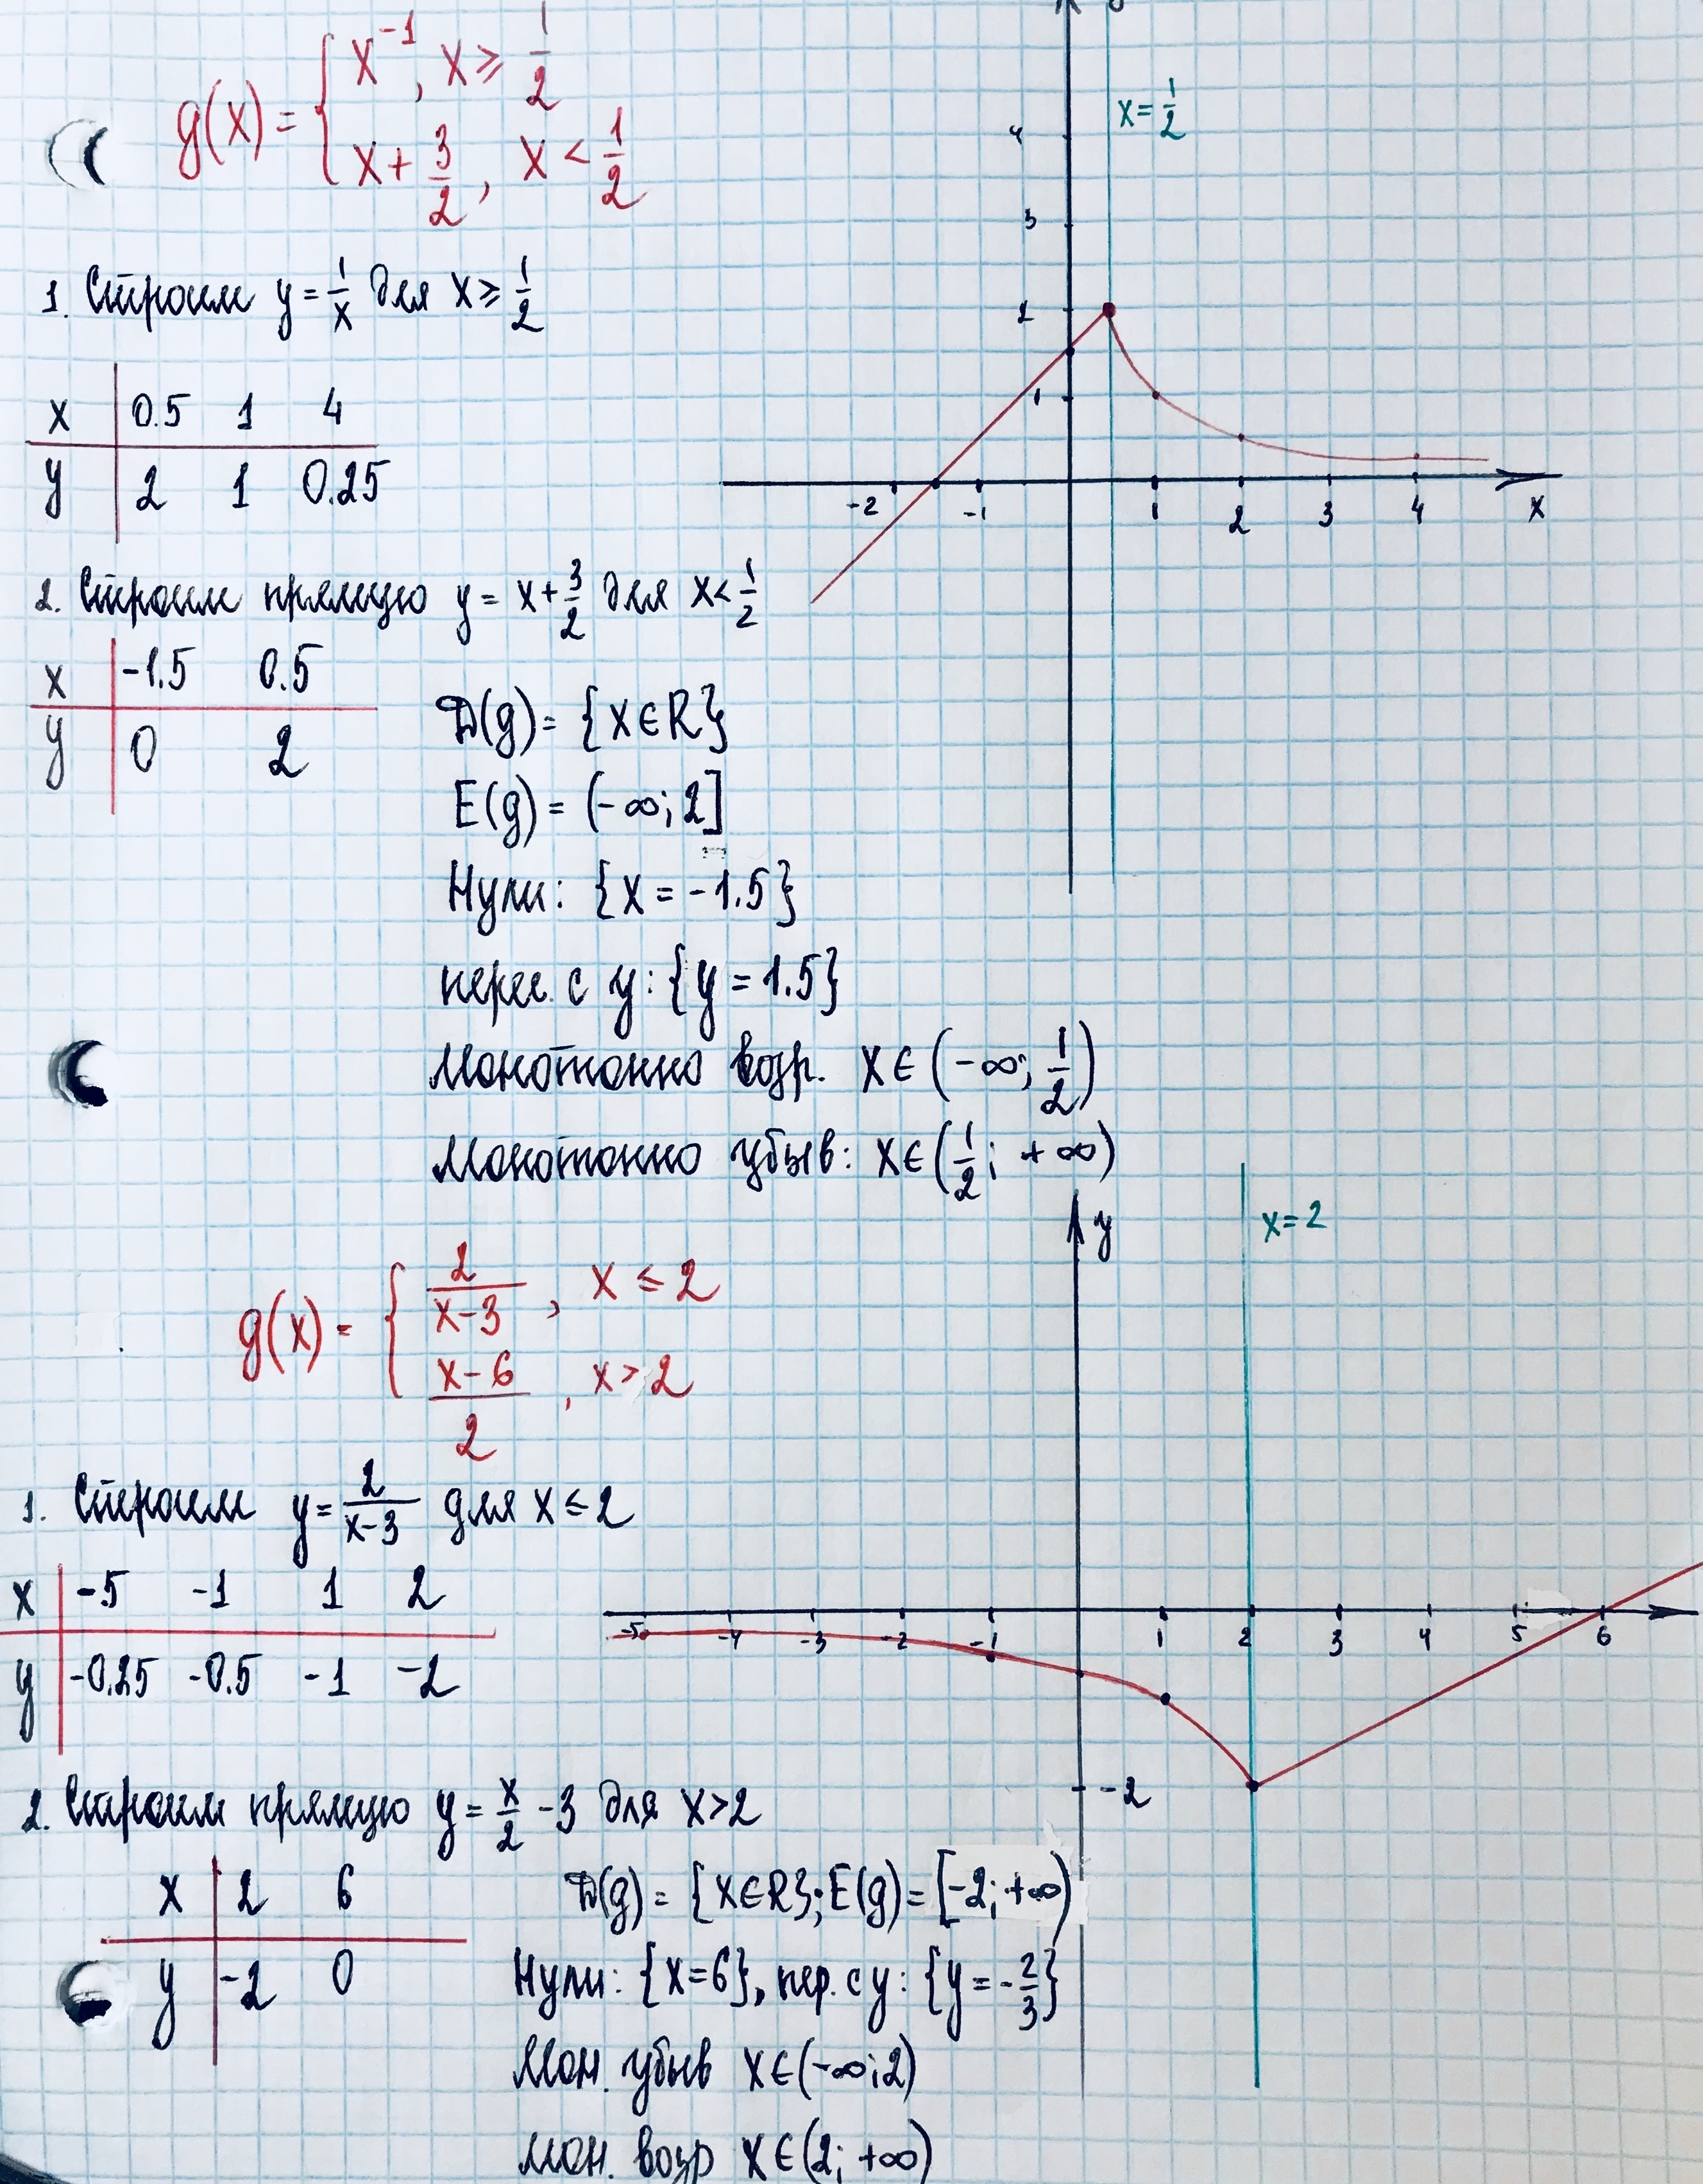 g(x) = { x⁻¹, x ≥ 1/2
x + 3/2, x < 1/2
1. Строим y = 1/x для x ≥ 1/2
x | 0.5 1 4
y | 2 1 0.25
2. Строим прямую y = x + 3/2 для x < 1/2
x | -1.5 0.5
y | 0 2
D(g) = {x ∈ R}
E(g) = (-∞; 2]
Нули: {x = -1.5}
перес. с y: {y = 1.5}
Монотонно возр. x ∈ (-∞; 1/2)
Монотонно убыв: x ∈ (1/2; +∞)
x = 1/2
4
3
2
1
-2 -1 1 2 3 4 x
g(x) = { 2/(x-3), x ≤ 2
(x-6)/2, x > 2
1. Строим y = 2/(x-3) для x ≤ 2
x | -5 -1 1 2
y | -0.25 -0.5 -1 -2
2. Строим прямую y = x/2 - 3 для x > 2
x | 2 6
y | -2 0
D(g) = {x ∈ R}; E(g) = [-2; +∞)
Нули: {x = 6}, пер. с y: {y = -2/3}
Мон. убыв x ∈ (-∞; 2)
Мон. возр x ∈ (2; +∞)
y
x = 2
-5 -4 -3 -2 -1 1 2 3 4 5 6
-2